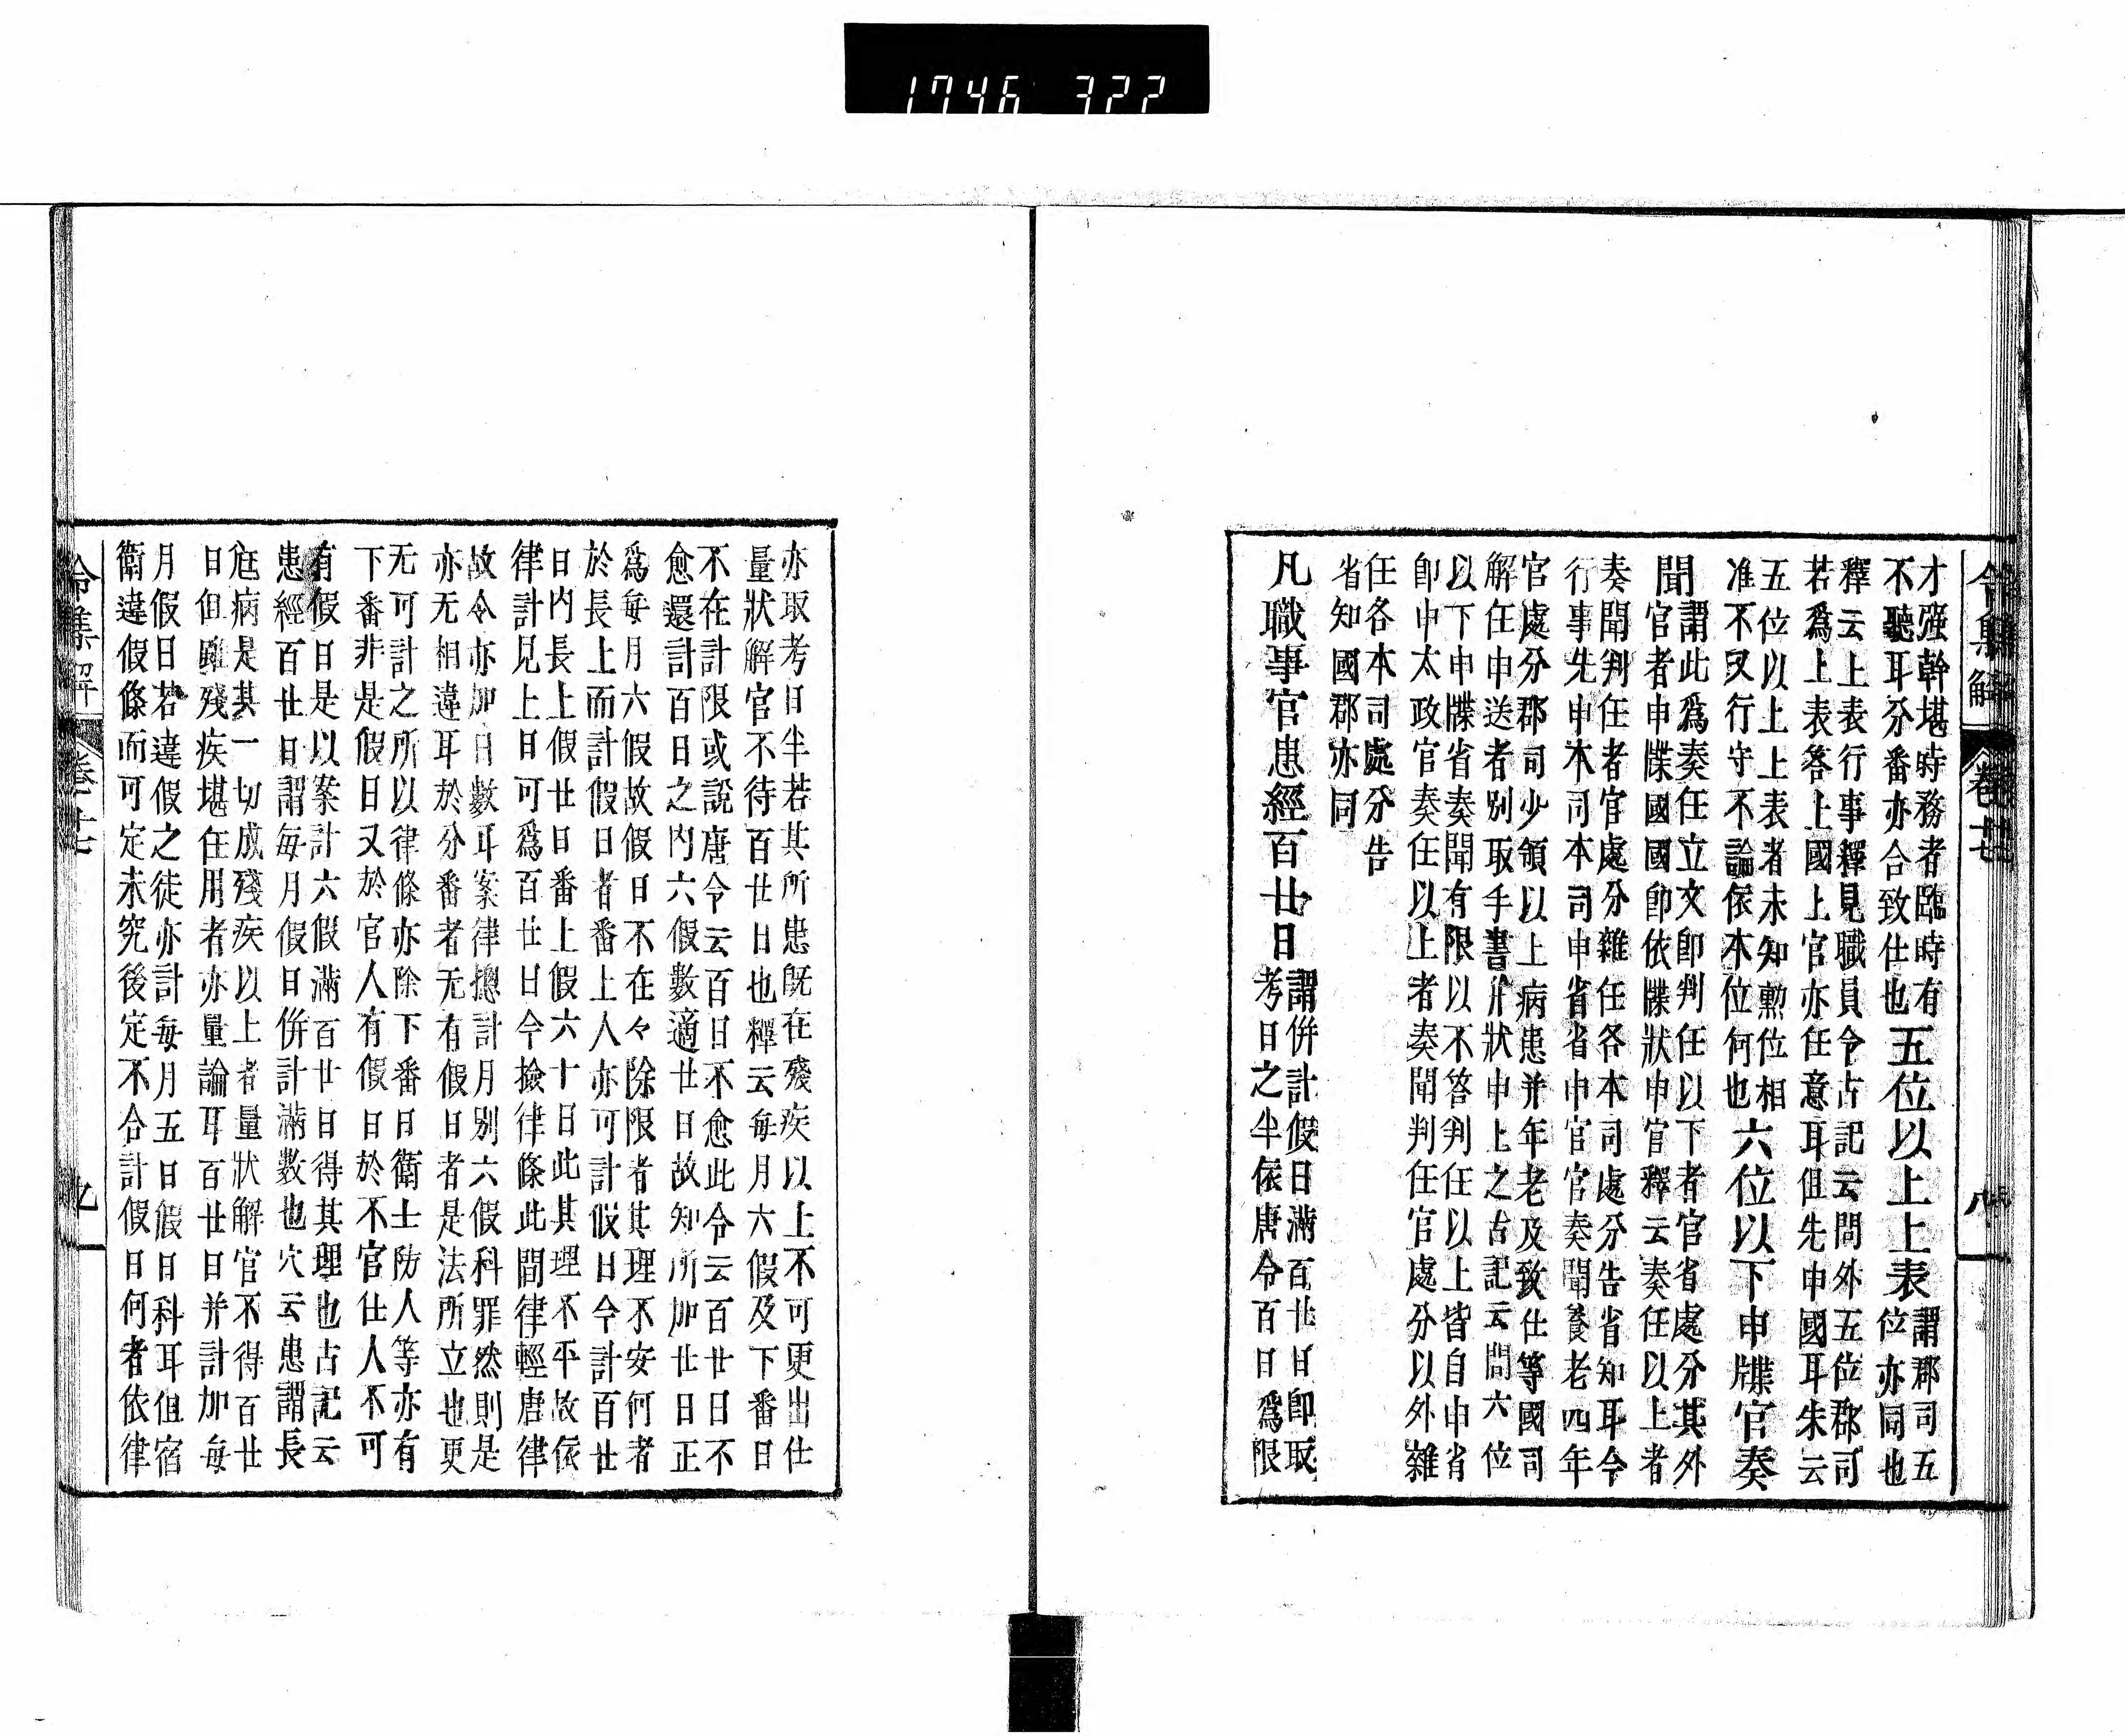 1746 322
令集解 卷廿七 八
才强幹堪時務者臨時有
不聽耳分番亦合致仕也五位以上上表謂郡司五
位亦同也
釋云上表行事釋見職員令古記云問外五位郡司
若爲上表答上國上官亦任意耳但先申國耳朱云
五位以上上表者未知勳位相
准不又行守不論依本位何也六位以下申牒官奏
聞謂此爲奏任立文卽判任以下者官省處分其外
官者申牒國國卽依牒狀申官釋云奏任以上者
奏聞判任者官處分雜任各本司處分告省知耳今
行事先申本司本司申省省申官官奏聞養老四年
官處分郡司少領以上病患并年老及致仕等國司
解任申送者別取手書片狀申上之古記云問六位
以下申牒省奏聞有限以不答判任以上皆自申省
卽申太政官奏任以上者奏聞判任官處分以外雜
任各本司處分告
省知國郡亦同
凡職事官患經百廿日謂併計假日滿百廿日卽取
考日之半依唐令百日爲限
亦取考日半若其所患旣在殘疾以上不可更出仕
量狀解官不待百廿日也釋云每月六假及下番日
不在計限或說唐令云百日不愈此令云百廿日不
愈還計百日之內六假數適廿日故知所加廿日正
爲每月六假故假日不在々除限者其理不安何者
於長上而計假日者番上人亦可計假日今計百廿
日內長上假廿日番上假六十日此其理不平故依
律計見上日可爲百廿日今撿律條此間律輕唐律
故令亦加日數耳案律摠計月別六假科罪然則是
亦无相違耳於分番者无有假日者是法所立也更
无可計之所以律條亦除下番日衛士防人等亦有
下番非是假日又於官人有假日於不官仕人不可
有假日是以案計六假滿百廿日得其理也古記云
患經百廿日謂每月假日併計滿數也穴云患謂長
尫病是其一切成殘疾以上者量狀解官不得百廿
日但雖殘疾堪任用者亦量論耳百廿日并計加每
月假日若違假之徒亦計每月五日假日科耳但宿
衛違假條而可定未究後定不合計假日何者依律
令集解 卷廿七 九